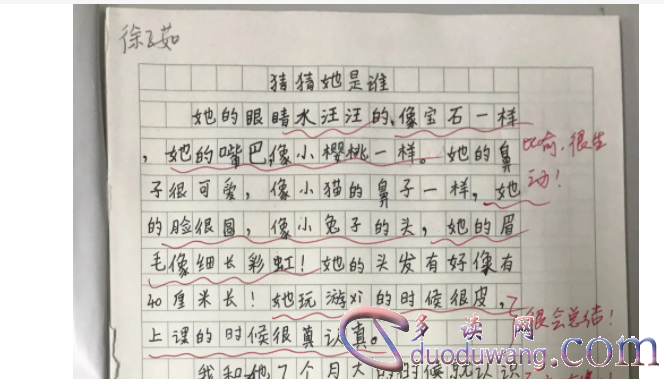 徐 茹
猜猜她是谁
她的眼睛水汪汪的,像宝石一样
,她的嘴巴像小樱桃一样。她的鼻
子很可爱,像小猫的鼻子一样,她
的脸很圆,像小兔子的头,她的眉
毛像细长彩虹!她的头发有好像有
40厘米长!她玩游xi的时候很皮,
上课的时候很真认真。
我和她7个月大的时候就认识
比喻.很生
动!
很会总结!
多读网
duoduwang.com